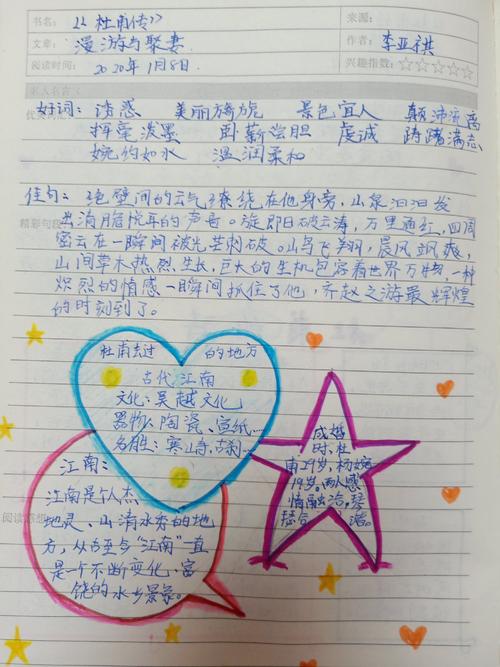 书名：《杜甫传》
来源：
文章：漫游与娶妻
作者：李亚祺
阅读时间：2020年1月8日.
兴趣指数：☆☆☆☆☆
好词：诱惑 美丽旖旎 景色宜人 颠沛流离
挥毫泼墨 卧薪尝胆 虔诚 踌躇满志
婉约如水 温润柔和
佳句：绝壁间的云气缭绕在他身旁，山泉汩汩发
出清脆悦耳的声音。旋即日破云涛，万里通红，四周
密云在一瞬间被光芒刺破。山鸟飞翔，晨风飒爽，
山间草木热烈生长，巨大的生机包容着世界万物，一种
炽烈的情感一瞬间抓住了他，齐赵之游最辉煌
的时刻到了。
杜甫去过的地方
古代江南
文化：吴越文化
器物：陶瓷、宣纸...
名胜：寒山寺、古刹...
江南：
江南是个人杰
地灵、山清水秀的地
方，从古至今“江南”一直
是一个不断变化、富
饶的水乡景象。
成婚
时，杜
甫29岁，杨婉
19岁。两人感
情融洽，琴
瑟合谐。